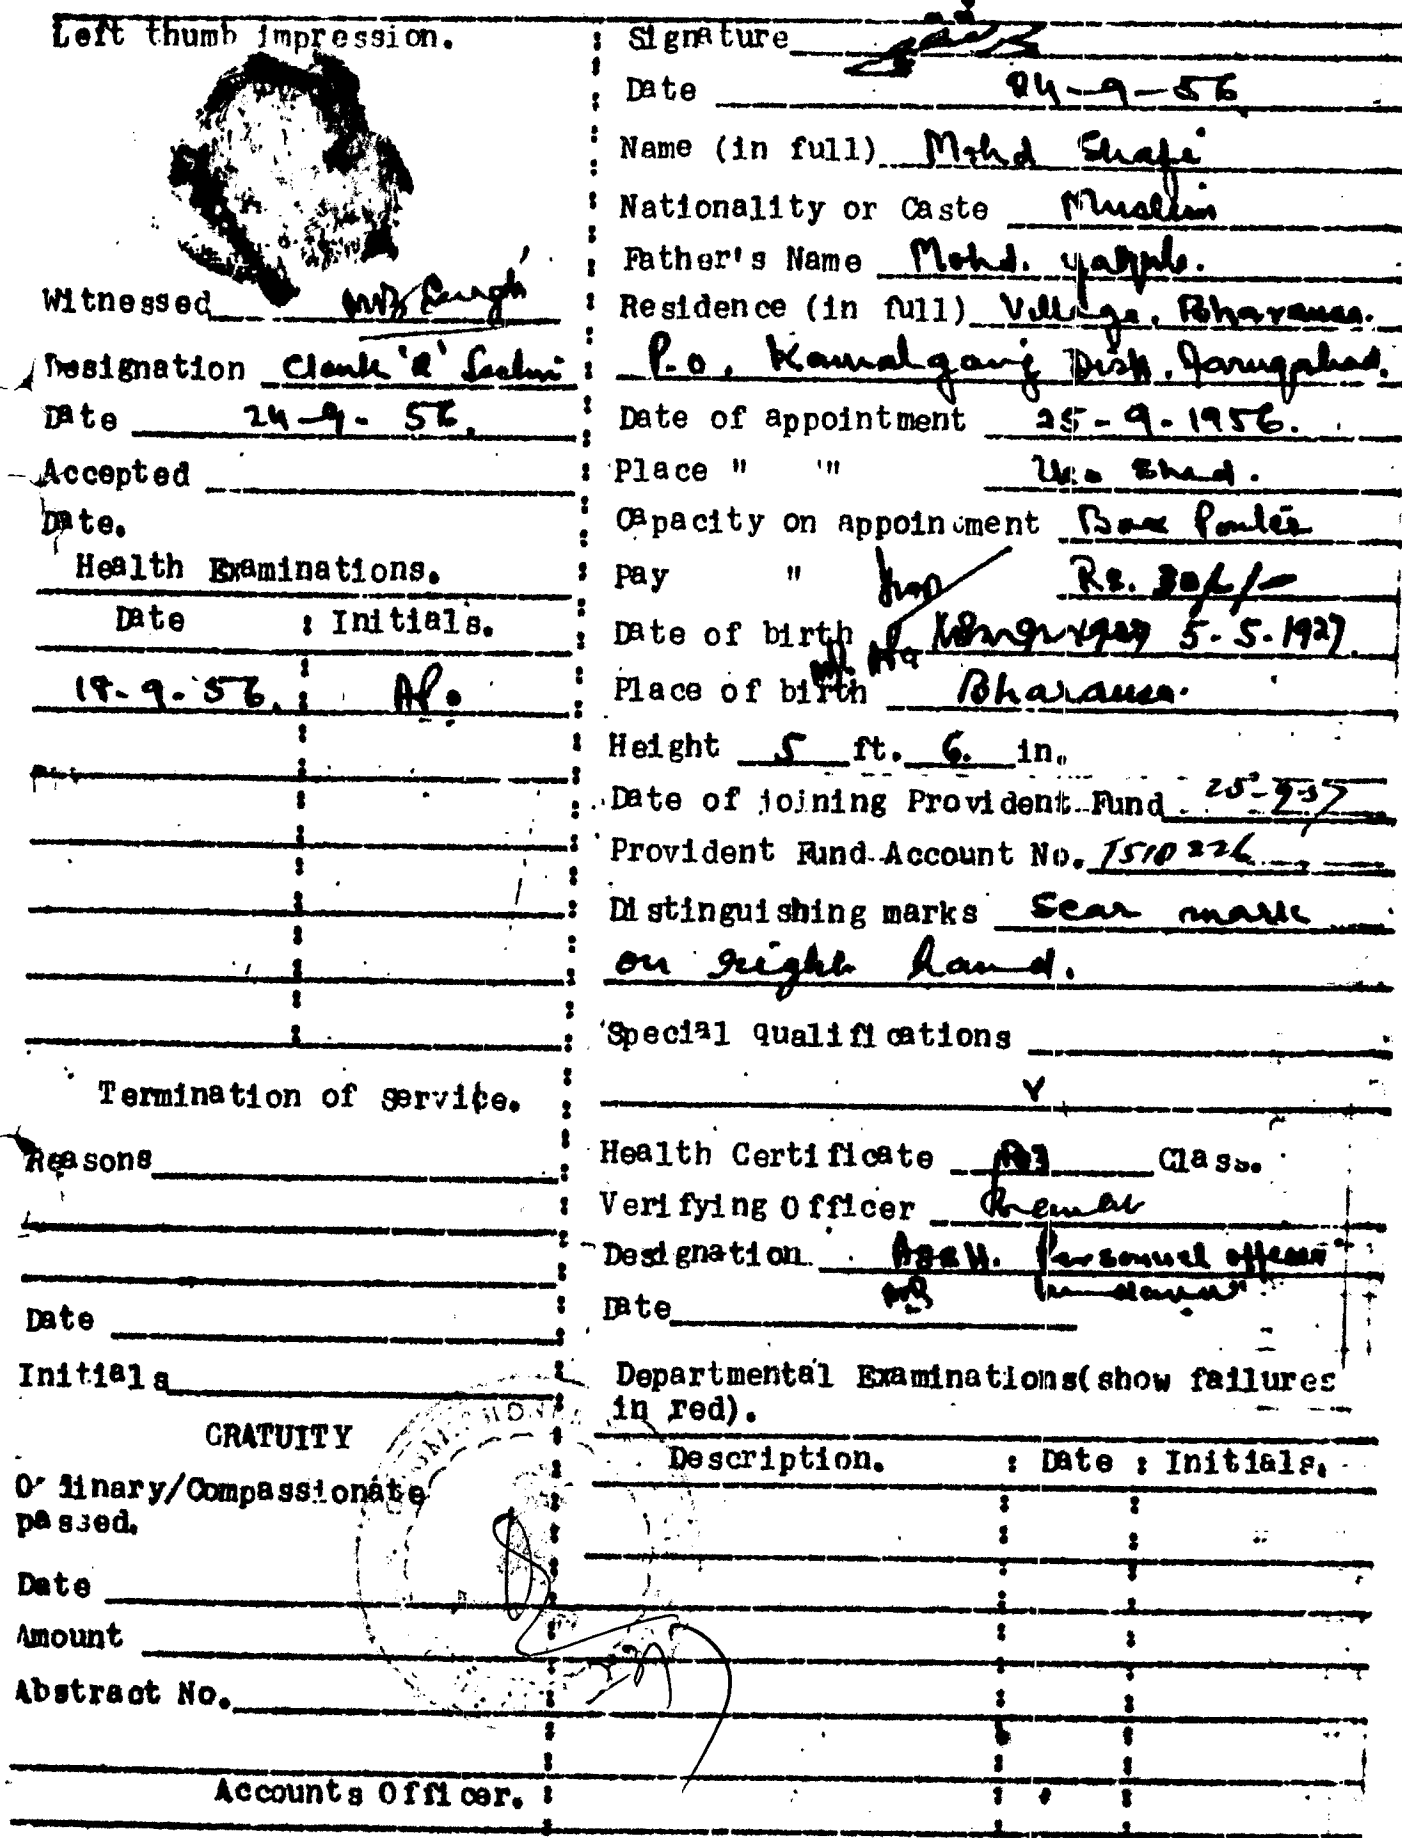 Left thumb impression.
Witnessed Singh
Designation Clerk
Date 24-9-56.
Accepted
Date.
Health Examinations.
Date : Initials.
18-9-56. AP.
Termination of service.
Reasons
Date
Initials
GRATUITY
Ordinary/Compassionate
passed.
Date
Amount
Abstract No.
Accounts Officer.
Signature
Date 24-9-56
Name (in full) Mohd Shafi
Nationality or Caste Muslim
Father's Name Mohd.
Residence (in full) Village,
P.o. Kamalganj Distt.
Date of appointment 25-9-1956.
Place " " Shed.
Capacity on appointment Box Porter
Pay " Rs. 30/-/-
Date of birth 5-5-1927
Place of birth
Height 5 ft. 6. in.
Date of joining Provident Fund
Provident Fund Account No.
Distinguishing marks Scar mark
on right hand.
Special qualifications
Health Certificate Class.
Verifying Officer
Designation Asstt. Personnel officer
Date
Departmental Examinations(show failures
in red).
Description. : Date : Initials.